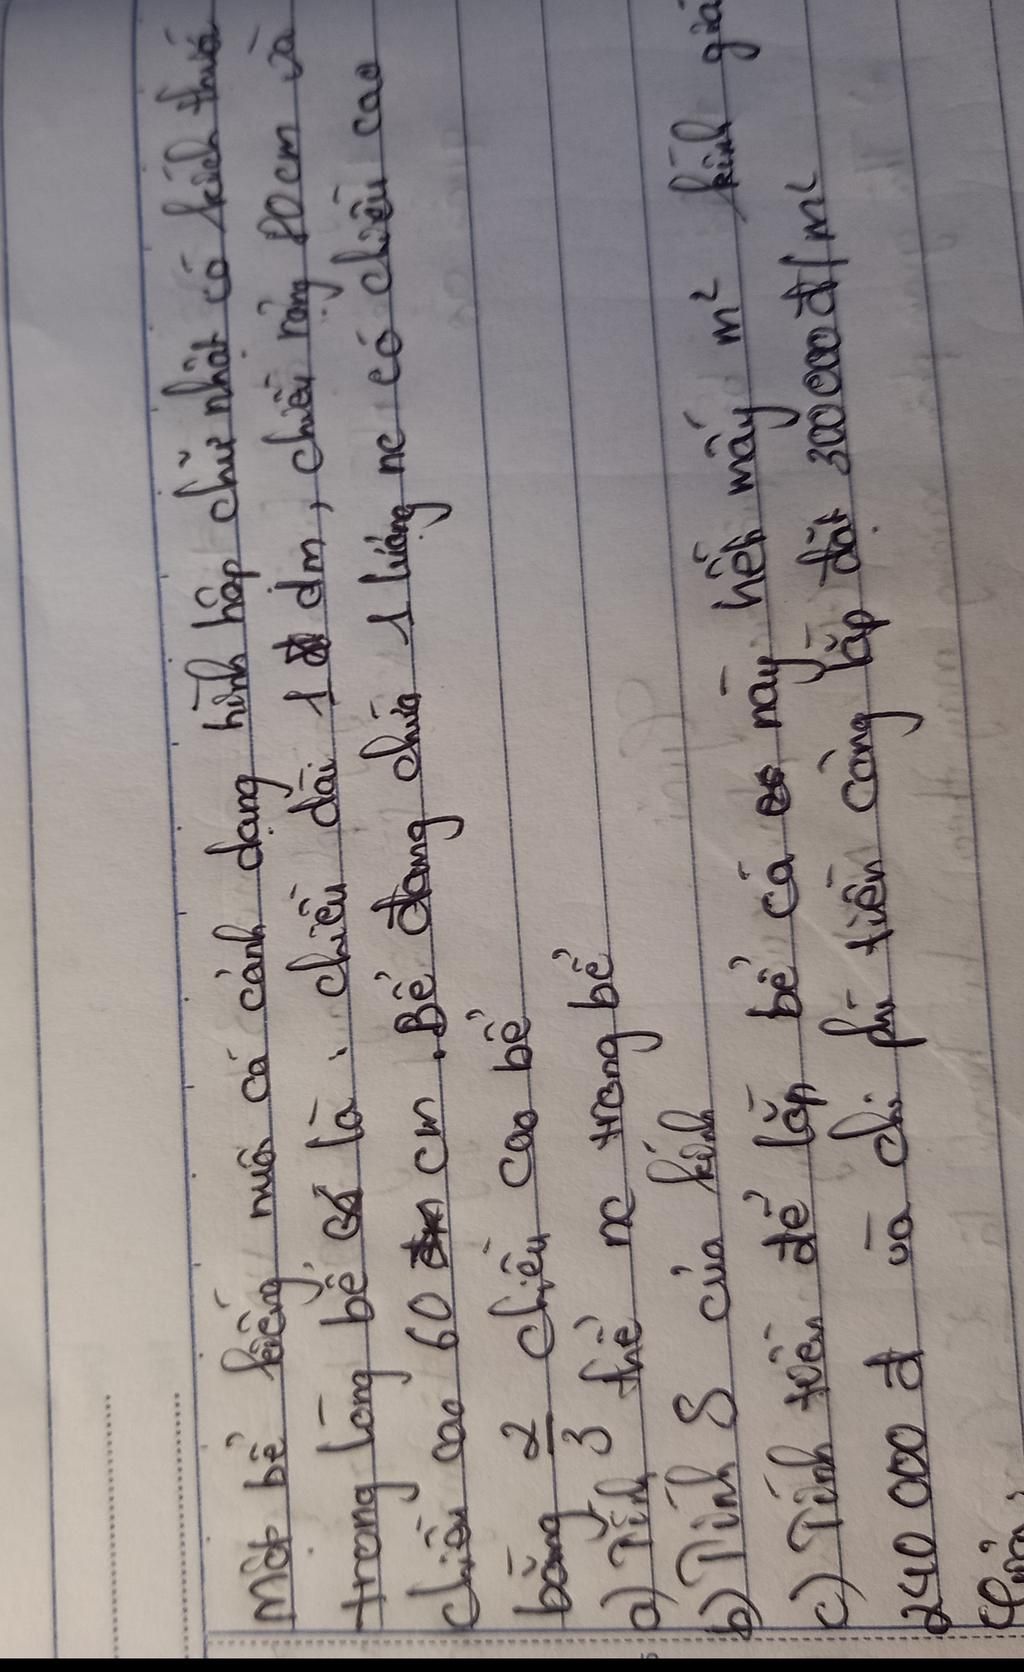 Một bể kiếng nuôi cá cảnh dạng hình hộp chữ nhật có kích thước
trong lòng bể là: chiều dài 1 dm, chiều rộng 80cm và
chiều cao 60 cm. Bể đang chứa 1 lượng nc có chiều cao
bằng 2/3 chiều cao bể
a) Tính thể nc trong bể
b) Tính S của kính
c) Tính tiền để lắp bể cá này hết mấy m² kính giá
240 000 đ và chi phí tiền công lắp đặt 300 000 đ/m²